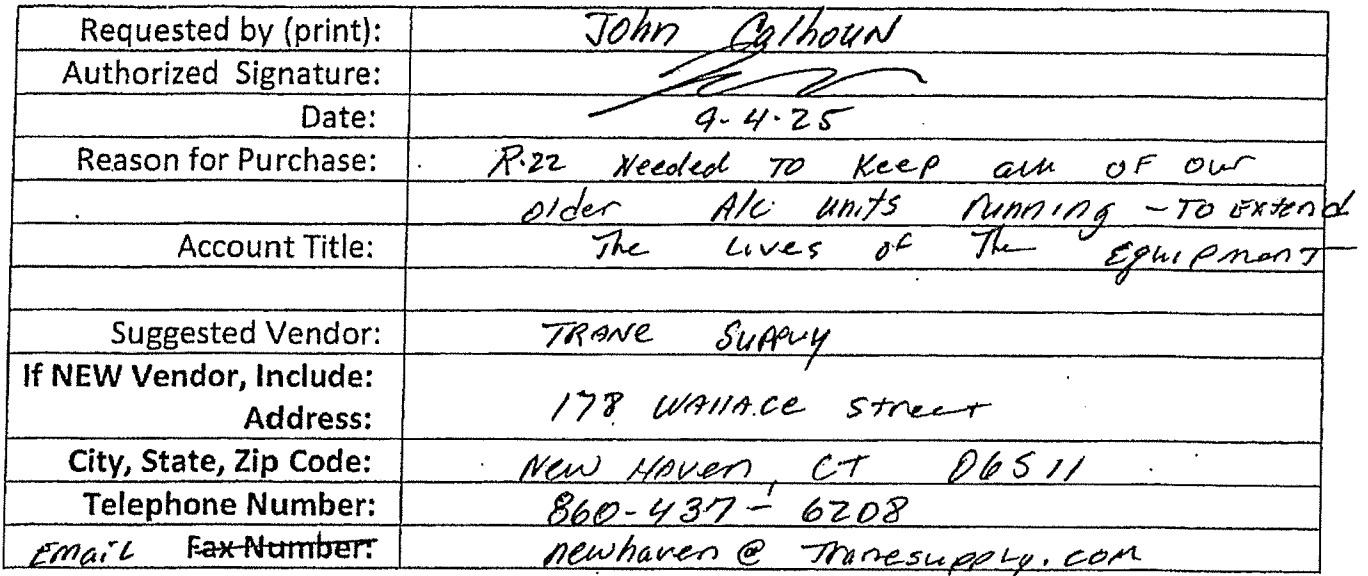 Requested by (print): John Calhoun
Authorized Signature:
Date: 9-4-25
Reason for Purchase: R-22 Needed TO Keep all OF our
older A/C units running - TO Extend
Account Title: The Lives of The Equipment
Suggested Vendor: TRANE SUPPLY
If NEW Vendor, Include:
Address: 178 WALLACE Street
City, State, Zip Code: New Haven, CT 06511
Telephone Number: 860-437-6208
Email Fax Number: newhaven @ Tranesupply.com